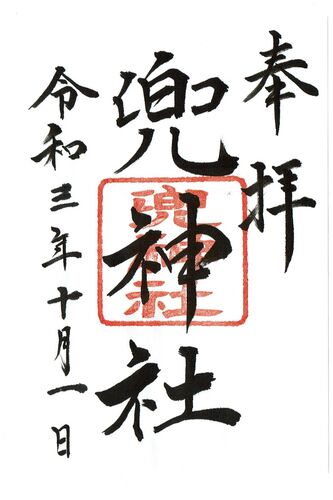 奉拝
兜神社
兜神社
令和三年十月一日